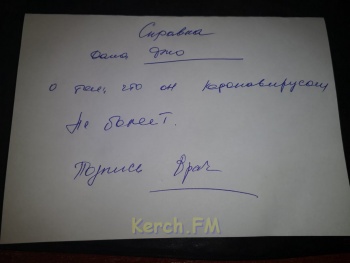 Справка
Дана Джо
О том, что он коронавирусом
Не болеет.
Подпись Врач
Kerch.FM